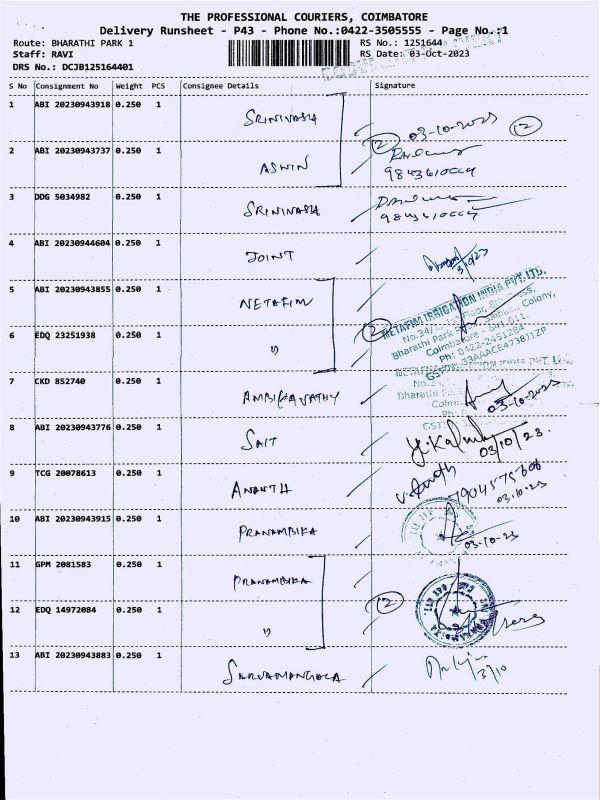 THE PROFESSIONAL COURIERS, COIMBATORE
Delivery Runsheet - P43 - Phone No.:0422-3505555 - Page No.:1
Route: BHARATHI PARK 1 RS No.: 1251644
Staff: RAVI RS Date: 03-Oct-2023
DRS No.: DCJB125164401
S No Consignment No Weight PCS Consignee Details Signature
1 ABI 20230943918 0.250 1 SRINIVASA 2 03-10-2023 2
2 ABI 20230943737 0.250 1 ASWIN 9843610004
3 DDG 5034982 0.250 1 SRINIVASA
4 ABI 20230944604 0.250 1 JOINT 3/10/23
5 ABI 20230943855 0.250 1 NETAFIM 2
NETAFIM IRRIGATION INDIA PVT. LTD.
Bharathi Park Colony,
Coimbatore - 641 011.
Ph: 0422-2451284
6 EDQ 23251938 0.250 1 "
7 CKD 852740 0.250 1 AMBIKAPATHY 03-10-2023
8 ABI 20230943776 0.250 1 SAIT 03/10/23.
9 TCG 20078613 0.250 1 ANANTH 03.10.23
10 ABI 20230943915 0.250 1 PRANAMBIKA 03-10-23
11 GPM 2081583 0.250 1 PRANAMBIKA 2
12 EDQ 14972084 0.250 1 "
13 ABI 20230943883 0.250 1 SARVAMANGALA 3/10